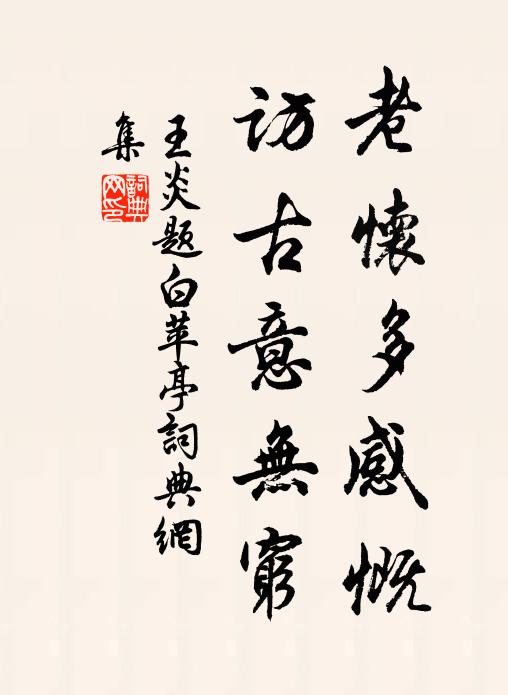 老懷多感慨
訪古意無窮
王炎題白苹亭詞典網
集
詞典網印